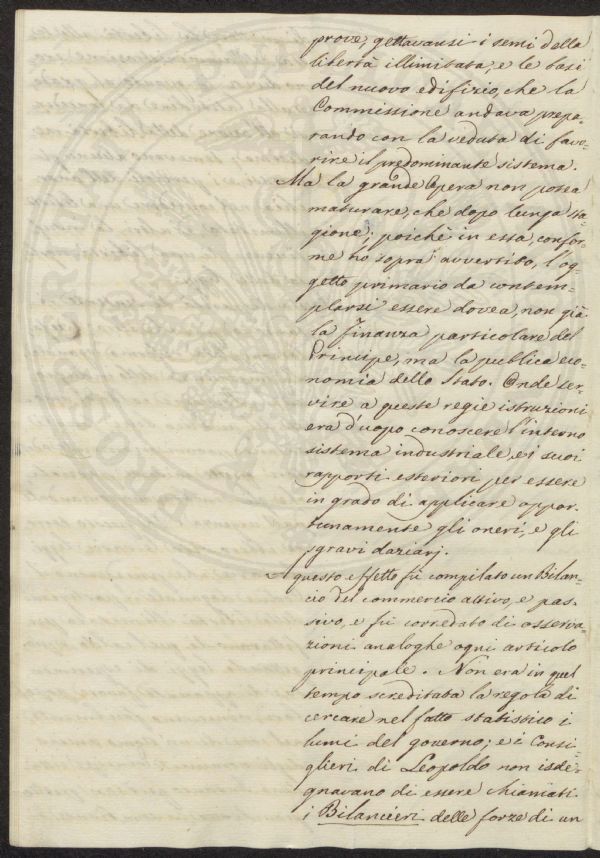 prove, gettavansi i semi della
libertà illimitata, e le basi
del nuovo edifizio, che la
Commissione andava prepa-
rando con la veduta di favo-
rire il predominante sistema.
Ma la grande Opera non potea
maturare, che dopo lunga sta-
gione; poichè in essa, confor-
me hò sopra avvertito, l'og-
getto primario da contem-
plarsi essere dovea, non già
la finanza particolare del
Principe, ma la publica eco-
nomia dello Stato. Onde ser-
vire a queste regie istruzioni
era d'uopo conoscere l'interno
sistema industriale, e i suoi
rapporti esteriori per essere
in grado di applicare oppor-
tunamente gli oneri, e gli
sgravi daziarj.
A questo effetto fù compilato un Bilan-
cio del commercio attivo, e pas-
sivo, e fù corredato di osserva-
zioni analoghe ogni articolo
principale. Non era in quel
tempo screditata la regola di
cercare nel fatto statistico i
lumi del governo; e i Consi-
glieri di Leopoldo non isde-
gnavano di essere chiamati
i Bilancieri delle forze di un